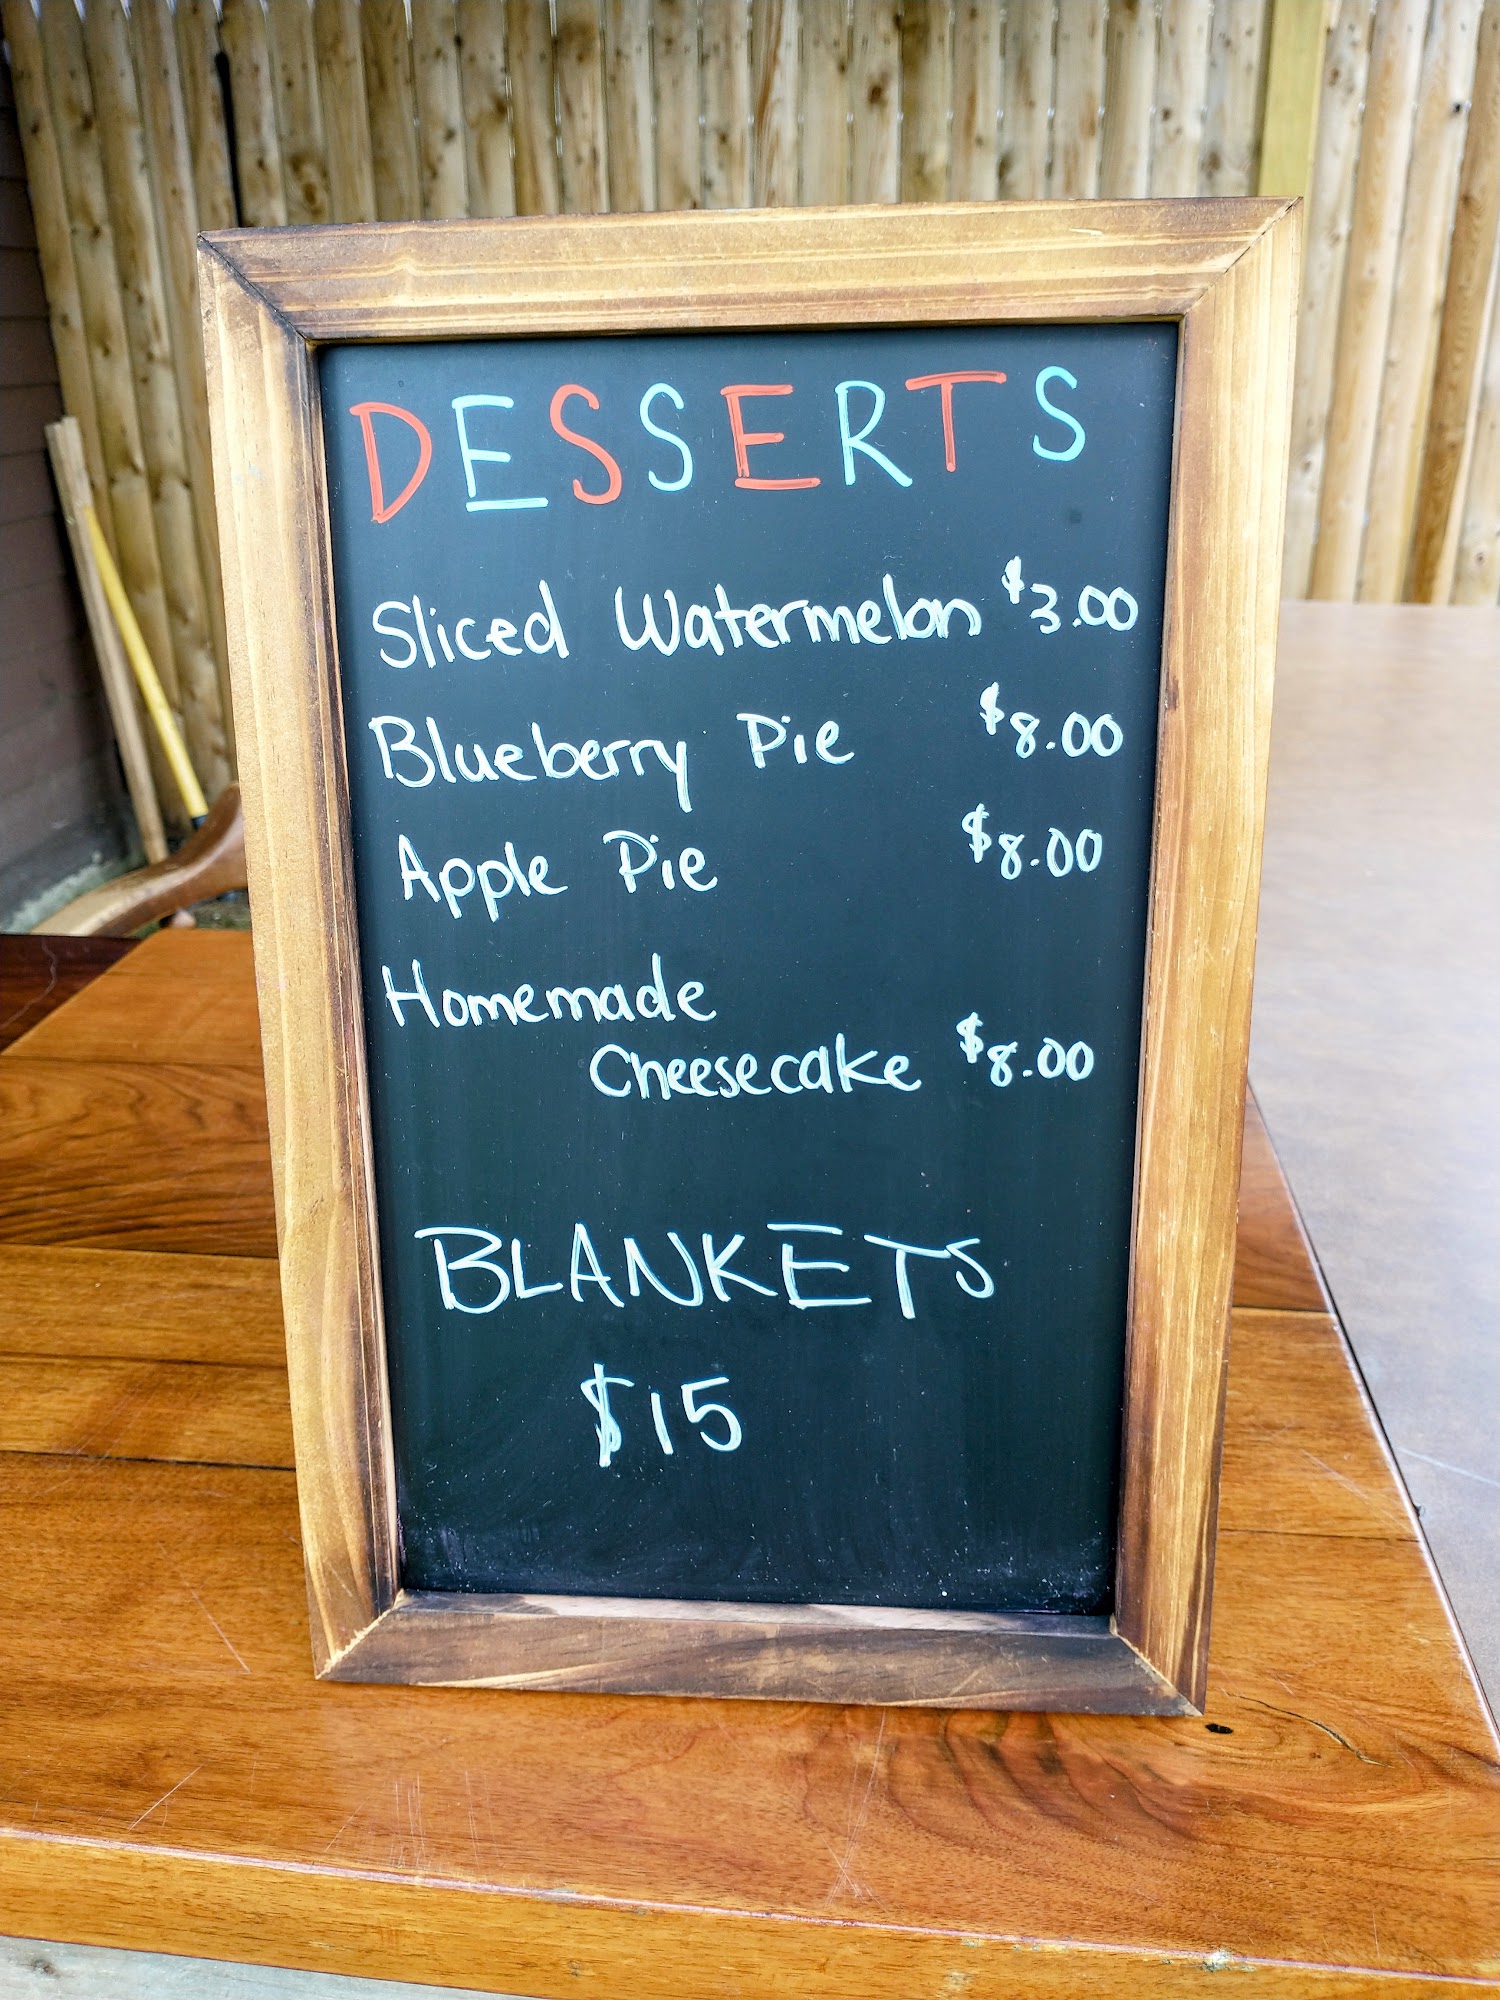 DESSERTS
Sliced Watermelon $3.00
Blueberry Pie $8.00
Apple Pie $8.00
Homemade
Cheesecake $8.00
BLANKETS
$15